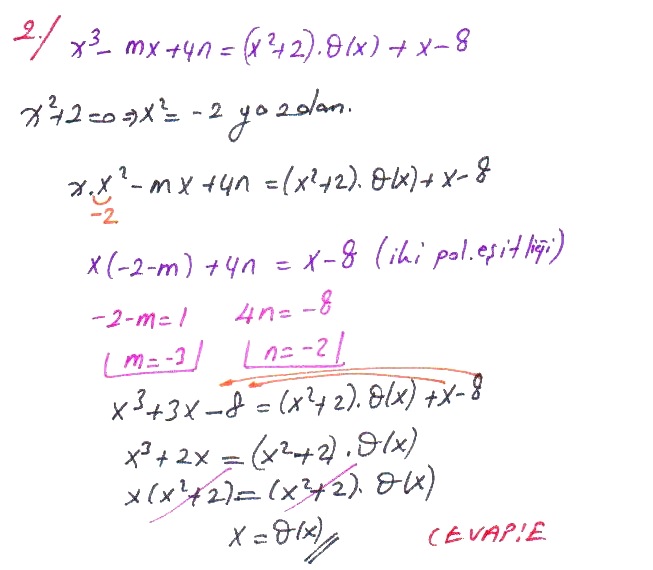 2./ x³ - mx + 4n = (x²+2).θ(x) + x-8
x²+2=0 ⇒ x² = -2 yazalım.
x.x² - mx + 4n = (x²+2). θ(x) + x-8
-2
x(-2-m) + 4n = x-8 (iki pol. eşitliği)
-2-m=1 4n=-8
m=-3 n=-2
x³+3x-8 = (x²+2).θ(x) + x-8
x³+2x = (x²+2).θ(x)
x(x²+2) = (x²+2). θ(x)
x = θ(x)
CEVAP:E